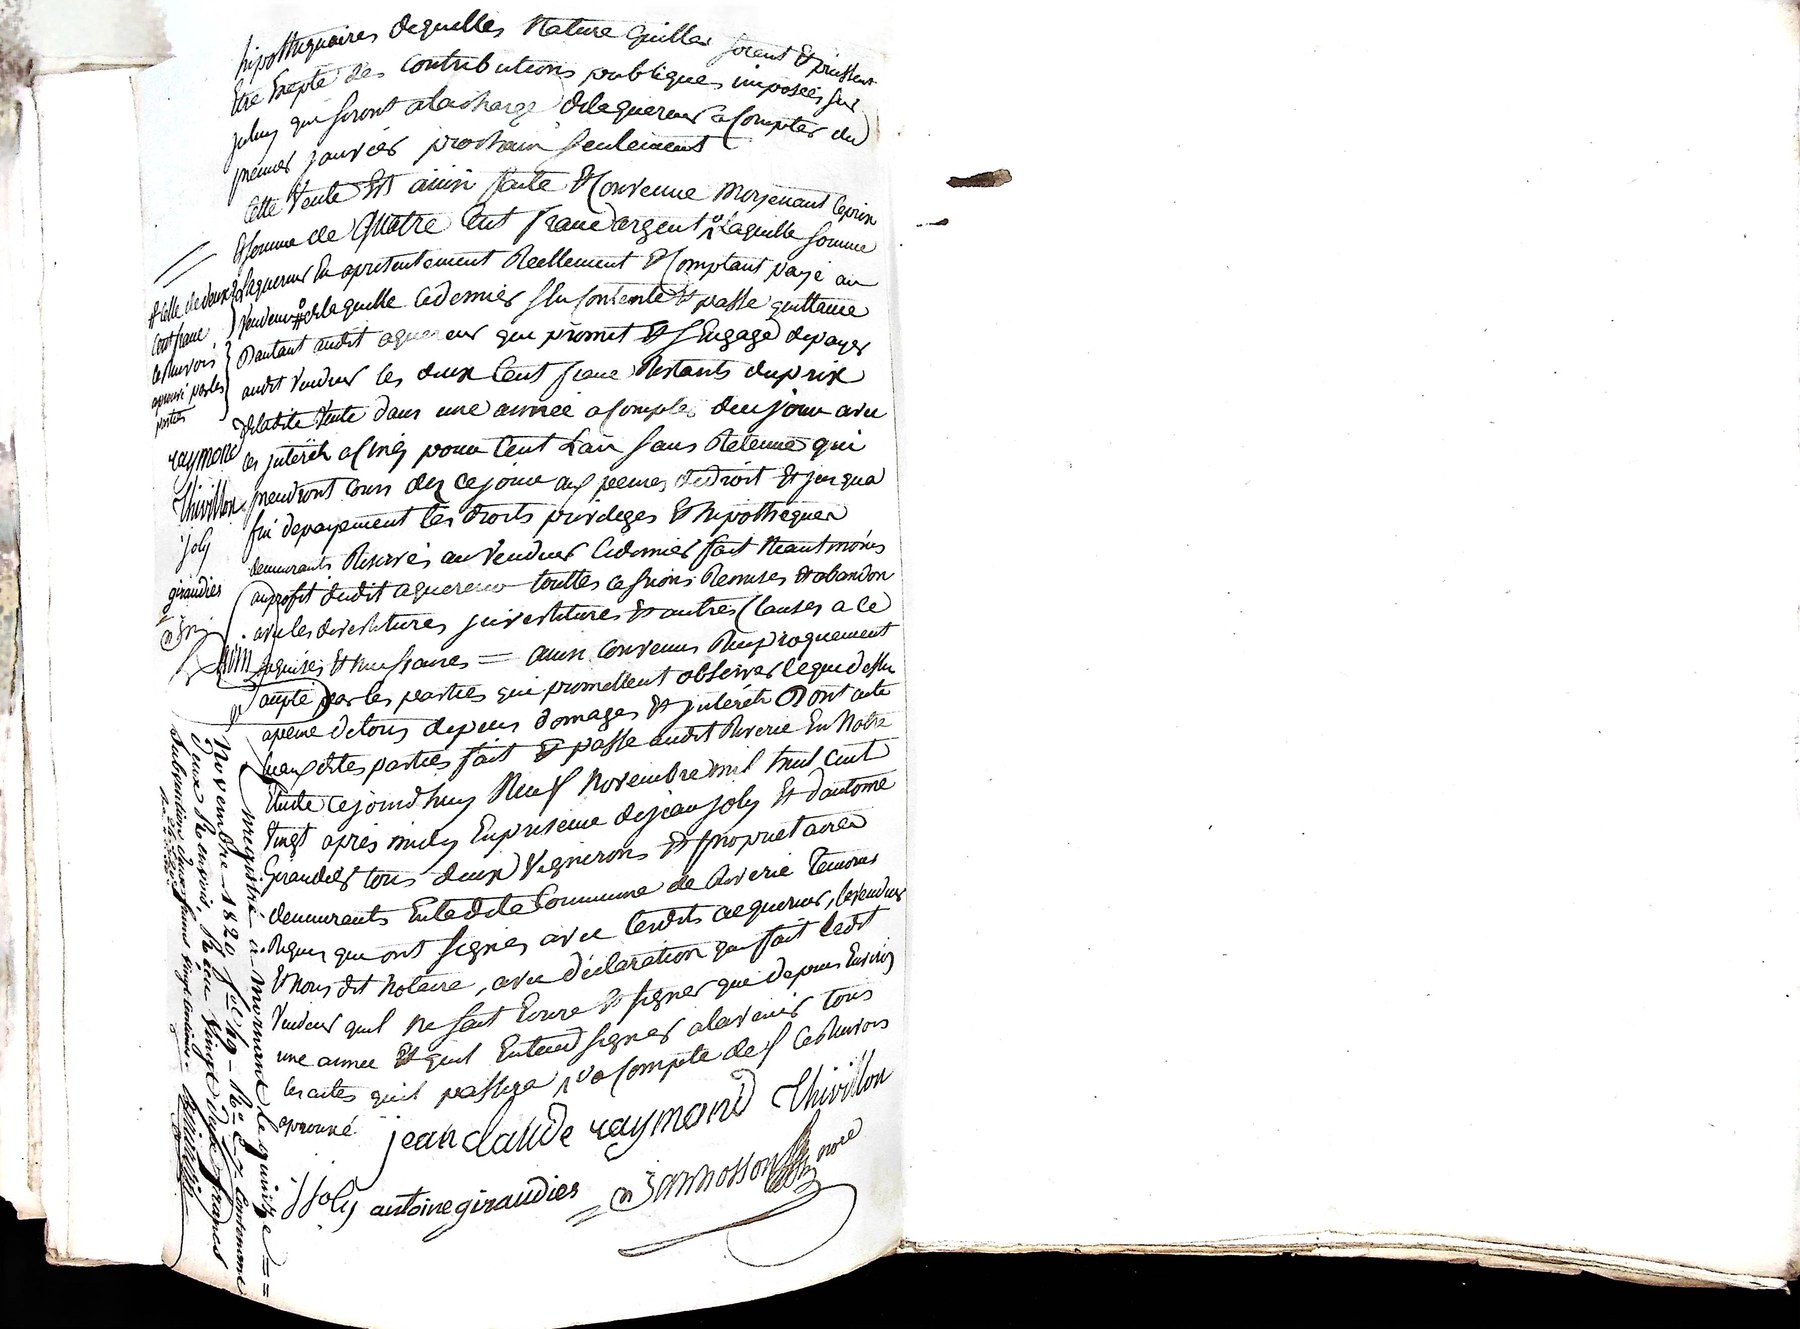 hipothequaires dequelles Nature quilles soient Et puissent
Etre Exepté des Contributions publiques imposées sur
qui seront alacharge delaquereur a Compter du
premier janvier prochain seulement
Cette Vente Est ainsi faite Et Convenue Moyenant leprix
Et somme de Quatre Cent franc argent Laquelle somme
laquereur En a presentement Réellement Et Comptant payé au
Vendeur # delaquelle Cedernier Contente Et passe quittance
Dautant audit aquereur qui promet Et SEngage depayer
audit Vendeur les deux Cent franc Restants duprix
deladite Vente dans une année acompter decejour avec
les jnterêts a Cinq pour Cent Lan sans Retenue qui
prendront cours dez cejour aux peines dedroit Et jusqua
fin depayement les droits privileges Et hipotheques
demeurants Reservés au Vendeur Cedernier fait Neantmoins
auprofit dudit aquereur touttes cessions Remises Et abandon
avec les devestitures jnvestitures Et autres Clauses a ce
requises Et Necessaires = ainsi Convenu Reciproquement
accepté par les parties qui promettent observer lequedessu
apeine detous depens domages Et jnterêts Dont acte
auxdites parties fait Et passé audit Riverie En Notre
Etude cejourdhuy Neuf Novembre mil huit cent
Vingt après midy Enpresence dejean joly Et dantoine
Giraudier tous deux Vignerons Et proprietaires
demeurants Enladite Commune de Riverie Temoins
Requis qui ont signés avec lesdits aequereur, levendeur
Et Nous dit Notaire, avec déclaration que fait ledit
Vendeur quil Ne sait Ecrire Et signer que depuis Environ
une année Et quil Entend signer alavenir tous
les actes quil passera a Compte de Ce Renvois
aprouvé
jean claude raymond Thivillon
j joly antoine giraudier = Jarrosson Nore
# celle de deux
Cent franc
Ce Renvois
aprouvé par les
parties
raymond
Thivillon
joly
giraudier
Enregistré à Mornant le quinze
Novembre 1820 fol. 49 - Ro. C. 7. Contenant
deux Renvois, Reçu vingt deux francs
Subvention deux francs vingt centimes